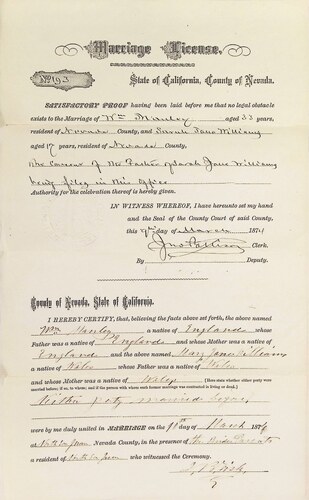 Marriage License.
No 193
State of California, County of Nevada.
SATISFACTORY PROOF having been laid before me that no legal obstacle
exists to the Marriage of Wm Manley aged 33 years,
resident of Nevada County, and Sarah Jane Williams
aged 17 years, resident of Nevada County.
The consent of the Father of Sarah Jane Williams
being filed in this office
Authority for the celebration thereof is hereby given.
IN WITNESS WHEREOF, I have hereunto set my hand
and the Seal of the County Court of said County,
this day of March 187
Clerk.
By Deputy.
County of Nevada, State of California.
I HEREBY CERTIFY, that, believing the facts above set forth, the above named
Wm Manley a native of England whose
Father was a native of England and whose Mother was a native of
England and the above named Mary Jane Williams
a native of Wales whose Father was a native of Wales
and whose Mother was a native of Wales (Here state whether either party were
married before; if so, to whom; and if the person with whom such former marriage was contracted is living or dead.)
Neither party married before,
were by me duly united in MARRIAGE on the day of March 187
at North San Juan Nevada County, in the presence of
a resident of North San Juan who witnessed the Ceremony.